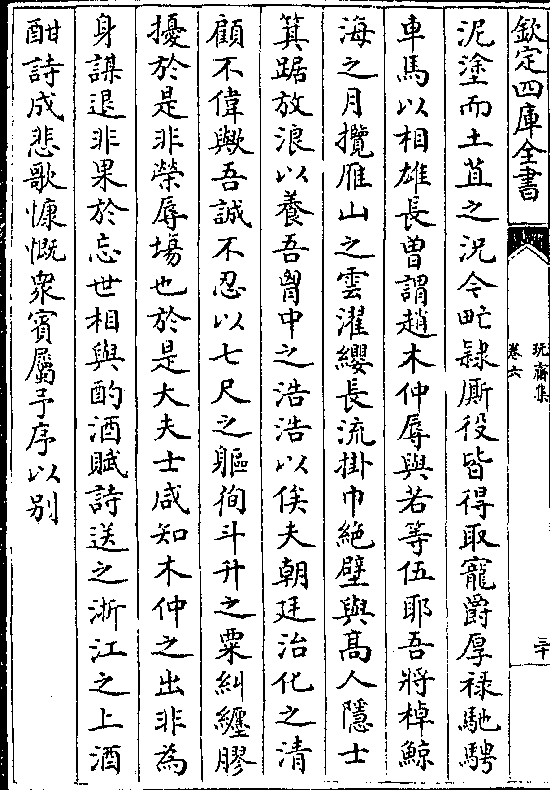 欽定四庫全書
玩齋集
卷六
三十
泥塗而土苴之況今甿隸厮役皆得取寵爵厚禄馳騁
車馬以相雄長曽謂趙木仲辱與若等伍耶吾將棹鯨
海之月攬雁山之雲濯纓長流掛巾絶壁與髙人隱士
箕踞放浪以養吾胷中之浩浩以俟夫朝廷治化之清
顧不偉歟吾誠不忍以七尺之軀徇斗升之粟糾纒膠
擾於是非榮辱塲也於是大夫士咸知木仲之出非為
身謀退非果於忘世相與酌酒賦詩送之浙江之上酒
酣詩成悲歌慷慨衆賓屬予序以别